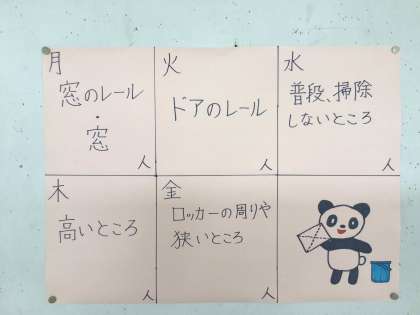 月
窓のレール
・
窓
人
火
ドアのレール
人
水
普段、掃除
しないところ
人
木
高いところ
人
金
ロッカーの周りや
狭いところ
人